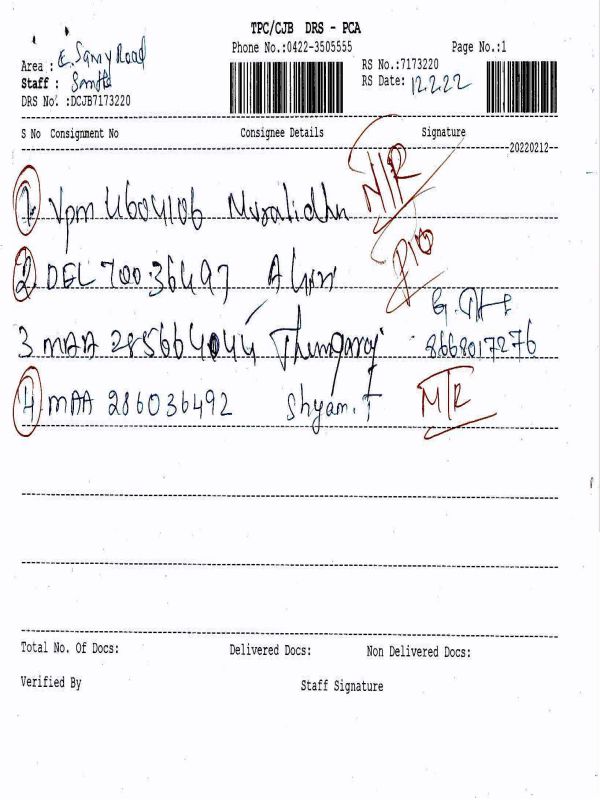 TPC/CJB DRS - PCA
Phone No.:0422-3505555 Page No.:1
Area : E. Samy Road
RS No.:7173220
Staff :
RS Date: 12.2.22
DRS No. :DCJB7173220
S No Consignment No Consignee Details Signature
20220212
1 Vpm 4604106 Muralidhn N/R
2 DEL 700 36497
3 MAA 285664044 Thangaraj 8668017276
4 MAA 286036492 Shyam. T
Total No. Of Docs: Delivered Docs: Non Delivered Docs:
Verified By Staff Signature